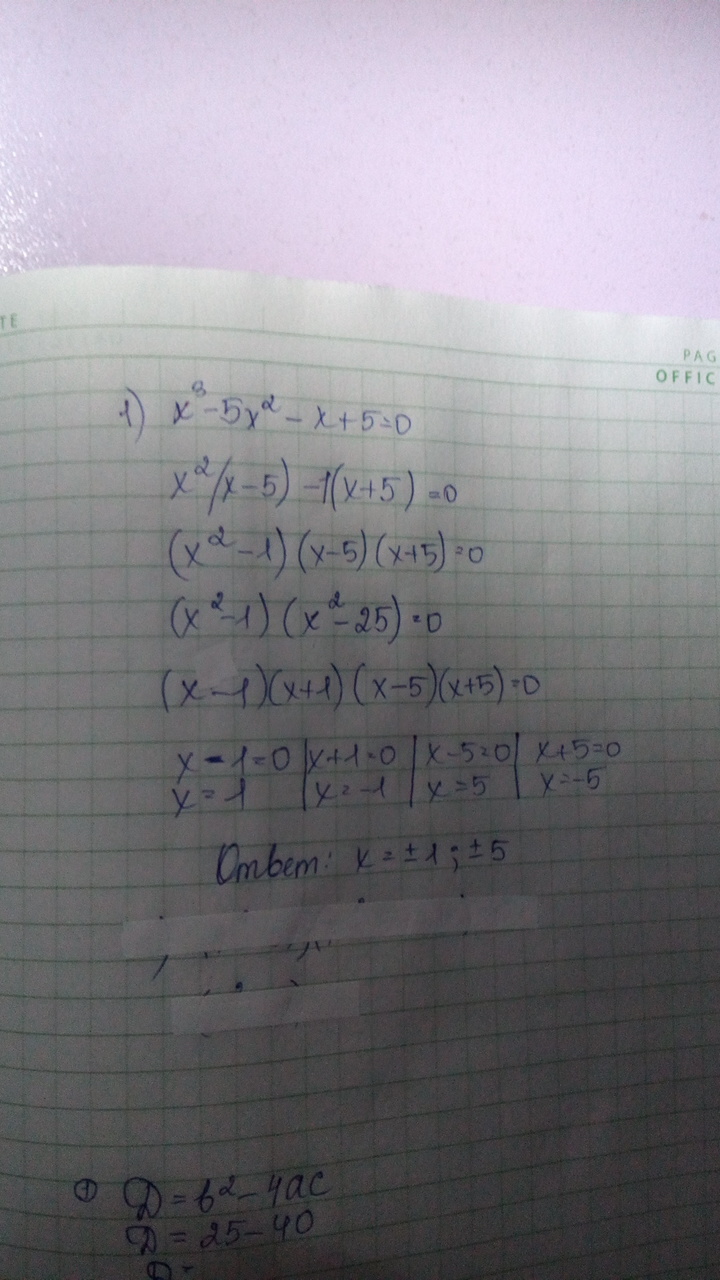 TE
PAG
OFFIC
1) x³-5x²-x+5=0
x²(x-5)-1(x+5)=0
(x²-1)(x-5)(x+5)=0
(x²-1)(x²-25)=0
(x-1)(x+1)(x-5)(x+5)=0
x-1=0 | x+1=0 | x-5=0 | x+5=0
x=1 | x=-1 | x=5 | x=-5
Ответ: x=±1;±5
① D=b²-4ac
D=25-40
D=